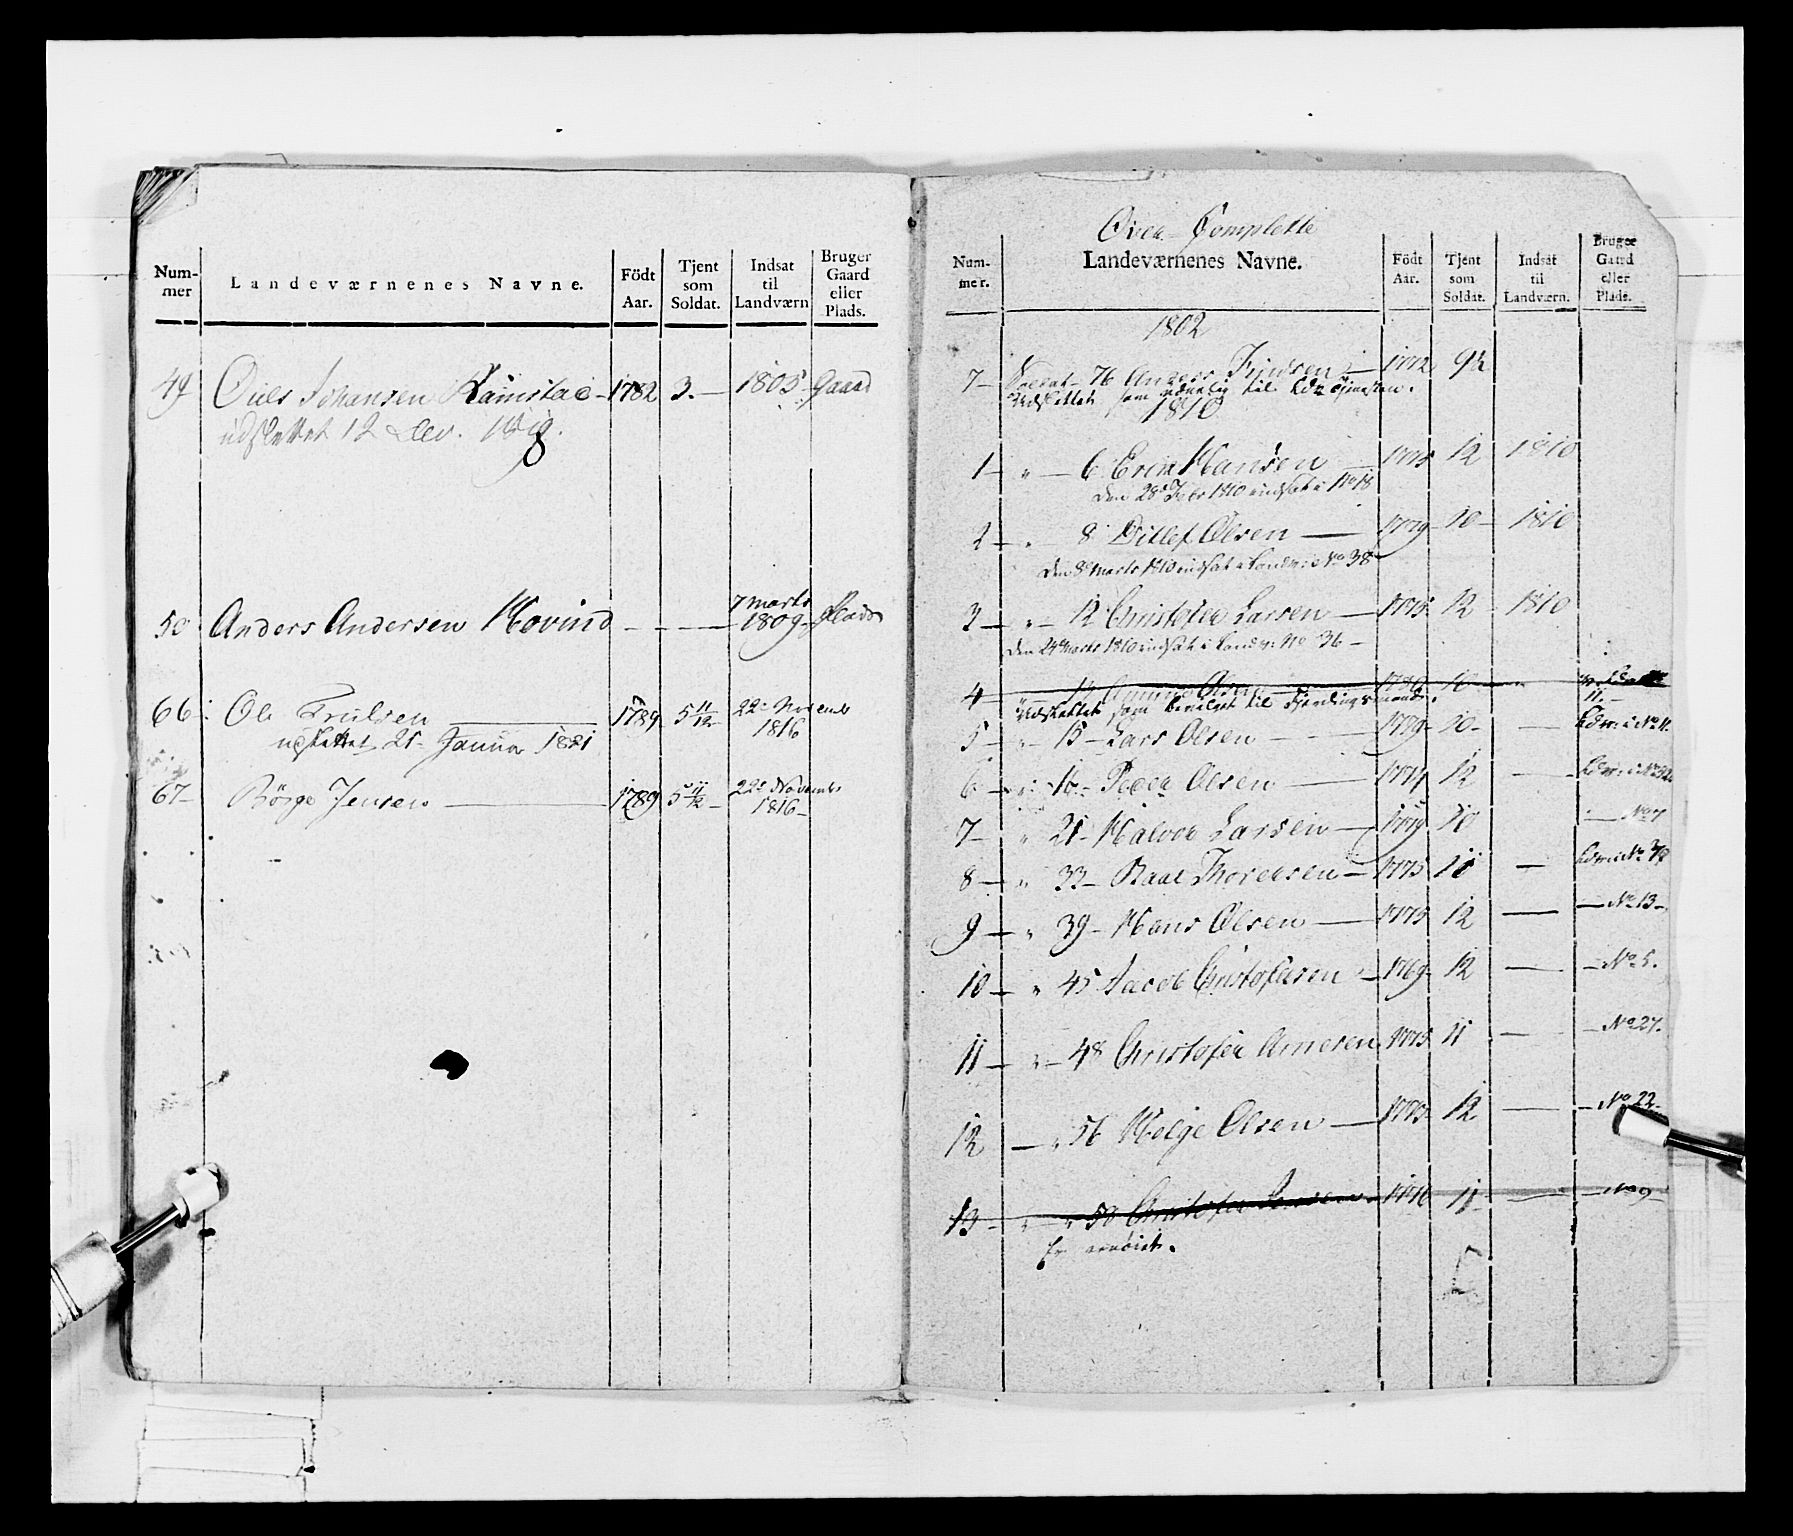 Num-
mer
Landeværnenes Navne.
Födt
Aar.
Tjent
som
Soldat.
Indsat
til
Landværn
Bruger
Gaard
eller
Plads.
49 Ouls Johansen Ramstad - 1782 3. - 1805 - Gaard
udslettet 12 Dec.
50 Anders Andersen Hovind - - - 7 Marts 1809 - Plads
66 Ole Trulsen 1789 5 11/12 22de Novemb 1816
udslettet 21 Januar 1821
67 - Börge Jensen 1789 5 11/12 22de Novembr 1816 -
Over Complette
Num-
mer.
Landeværnenes Navne.
Födt
Aar.
Tjent
som
Soldat.
Indsat
til
Landværn.
Bruger
Gaard
eller
Plads.
1802
7 - Soldat - 76 Anders 1772 9½
Udslettet som til Tjenesten.
1810
1 - " - 6 Erik Hansen - 1775 12 1810
den 28de Febr 1810 indsat i No 18
2 - " - 8 Ditlef Olsen - 1779 - 10 - 1810
den 8de Marts 1810 indsat i Landv: No 38
3 - " - 12 Christofer Larsen - 1775 12 - 1810
den 24de Marts 1810 indsat i Landv: No 36 -
4 - 14 Olsen 1780 10
Udslettet som til
5 - " - 15 - Lars Olsen - 1779 - 10 - Ldv: i No 11.
6 - " - 16 - Peder Olsen - 1774 12 - Ldv: i No 32
7 - " 21 - Halvor Larsen - 1779 10 - No 7
8 - " 33 - Paul Thoresen - 1775 11 - Ldv: i No 38
9 - " 39 - Hans Olsen - 1775 12 - - No 13 -
10 - " 45 Jacob Christofersen - 1769 - 12 - - No 5.
11 - " - 48 Christofer Arnesen 1775 11 - - No 27.
12 - " 56 Helge Olsen - 1775 12 - - No 22 -
13 - " - " 58 Christofer Jensen - 1776 11 - - No 9 -
Er